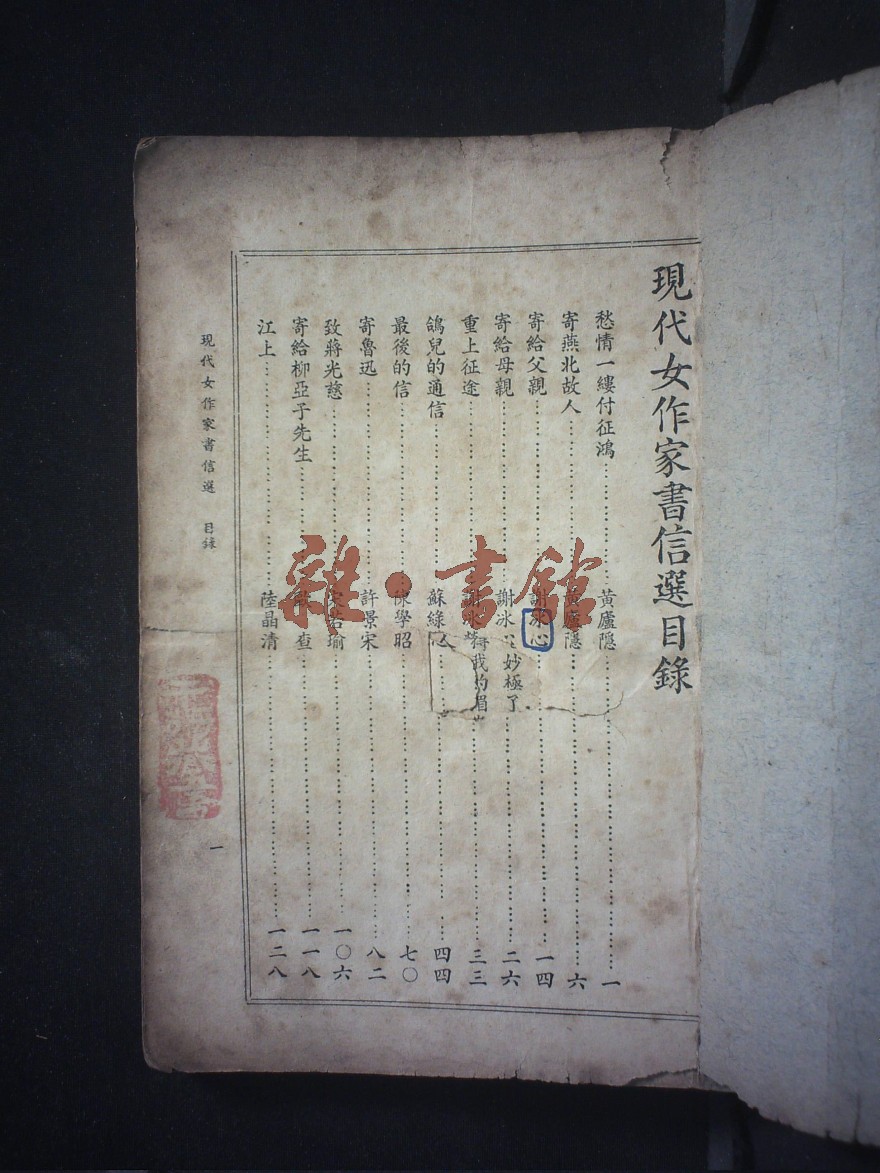 現代女作家書信選目錄
愁情一縷付征鴻……黃廬隱……一
寄燕北故人……黃廬隱……六
寄給父親……謝冰心……一四
寄給母親……謝冰……二六
妙極了
重上征途……謝冰瑩……三三
我的眉
鴿兒的通信……蘇綠……四四
最後的信……陳學昭……七〇
寄魯迅……許景宋……八二
致蔣光慈……宋若瑜……一〇六
寄給柳亞子先生……查……一一八
江上……陸晶清……一二八
現代女作家書信選 目錄
一
雜·書館